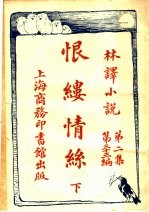 林譯小説 第二集
第
編
恨縷情絲
下
上海商務印書館出版